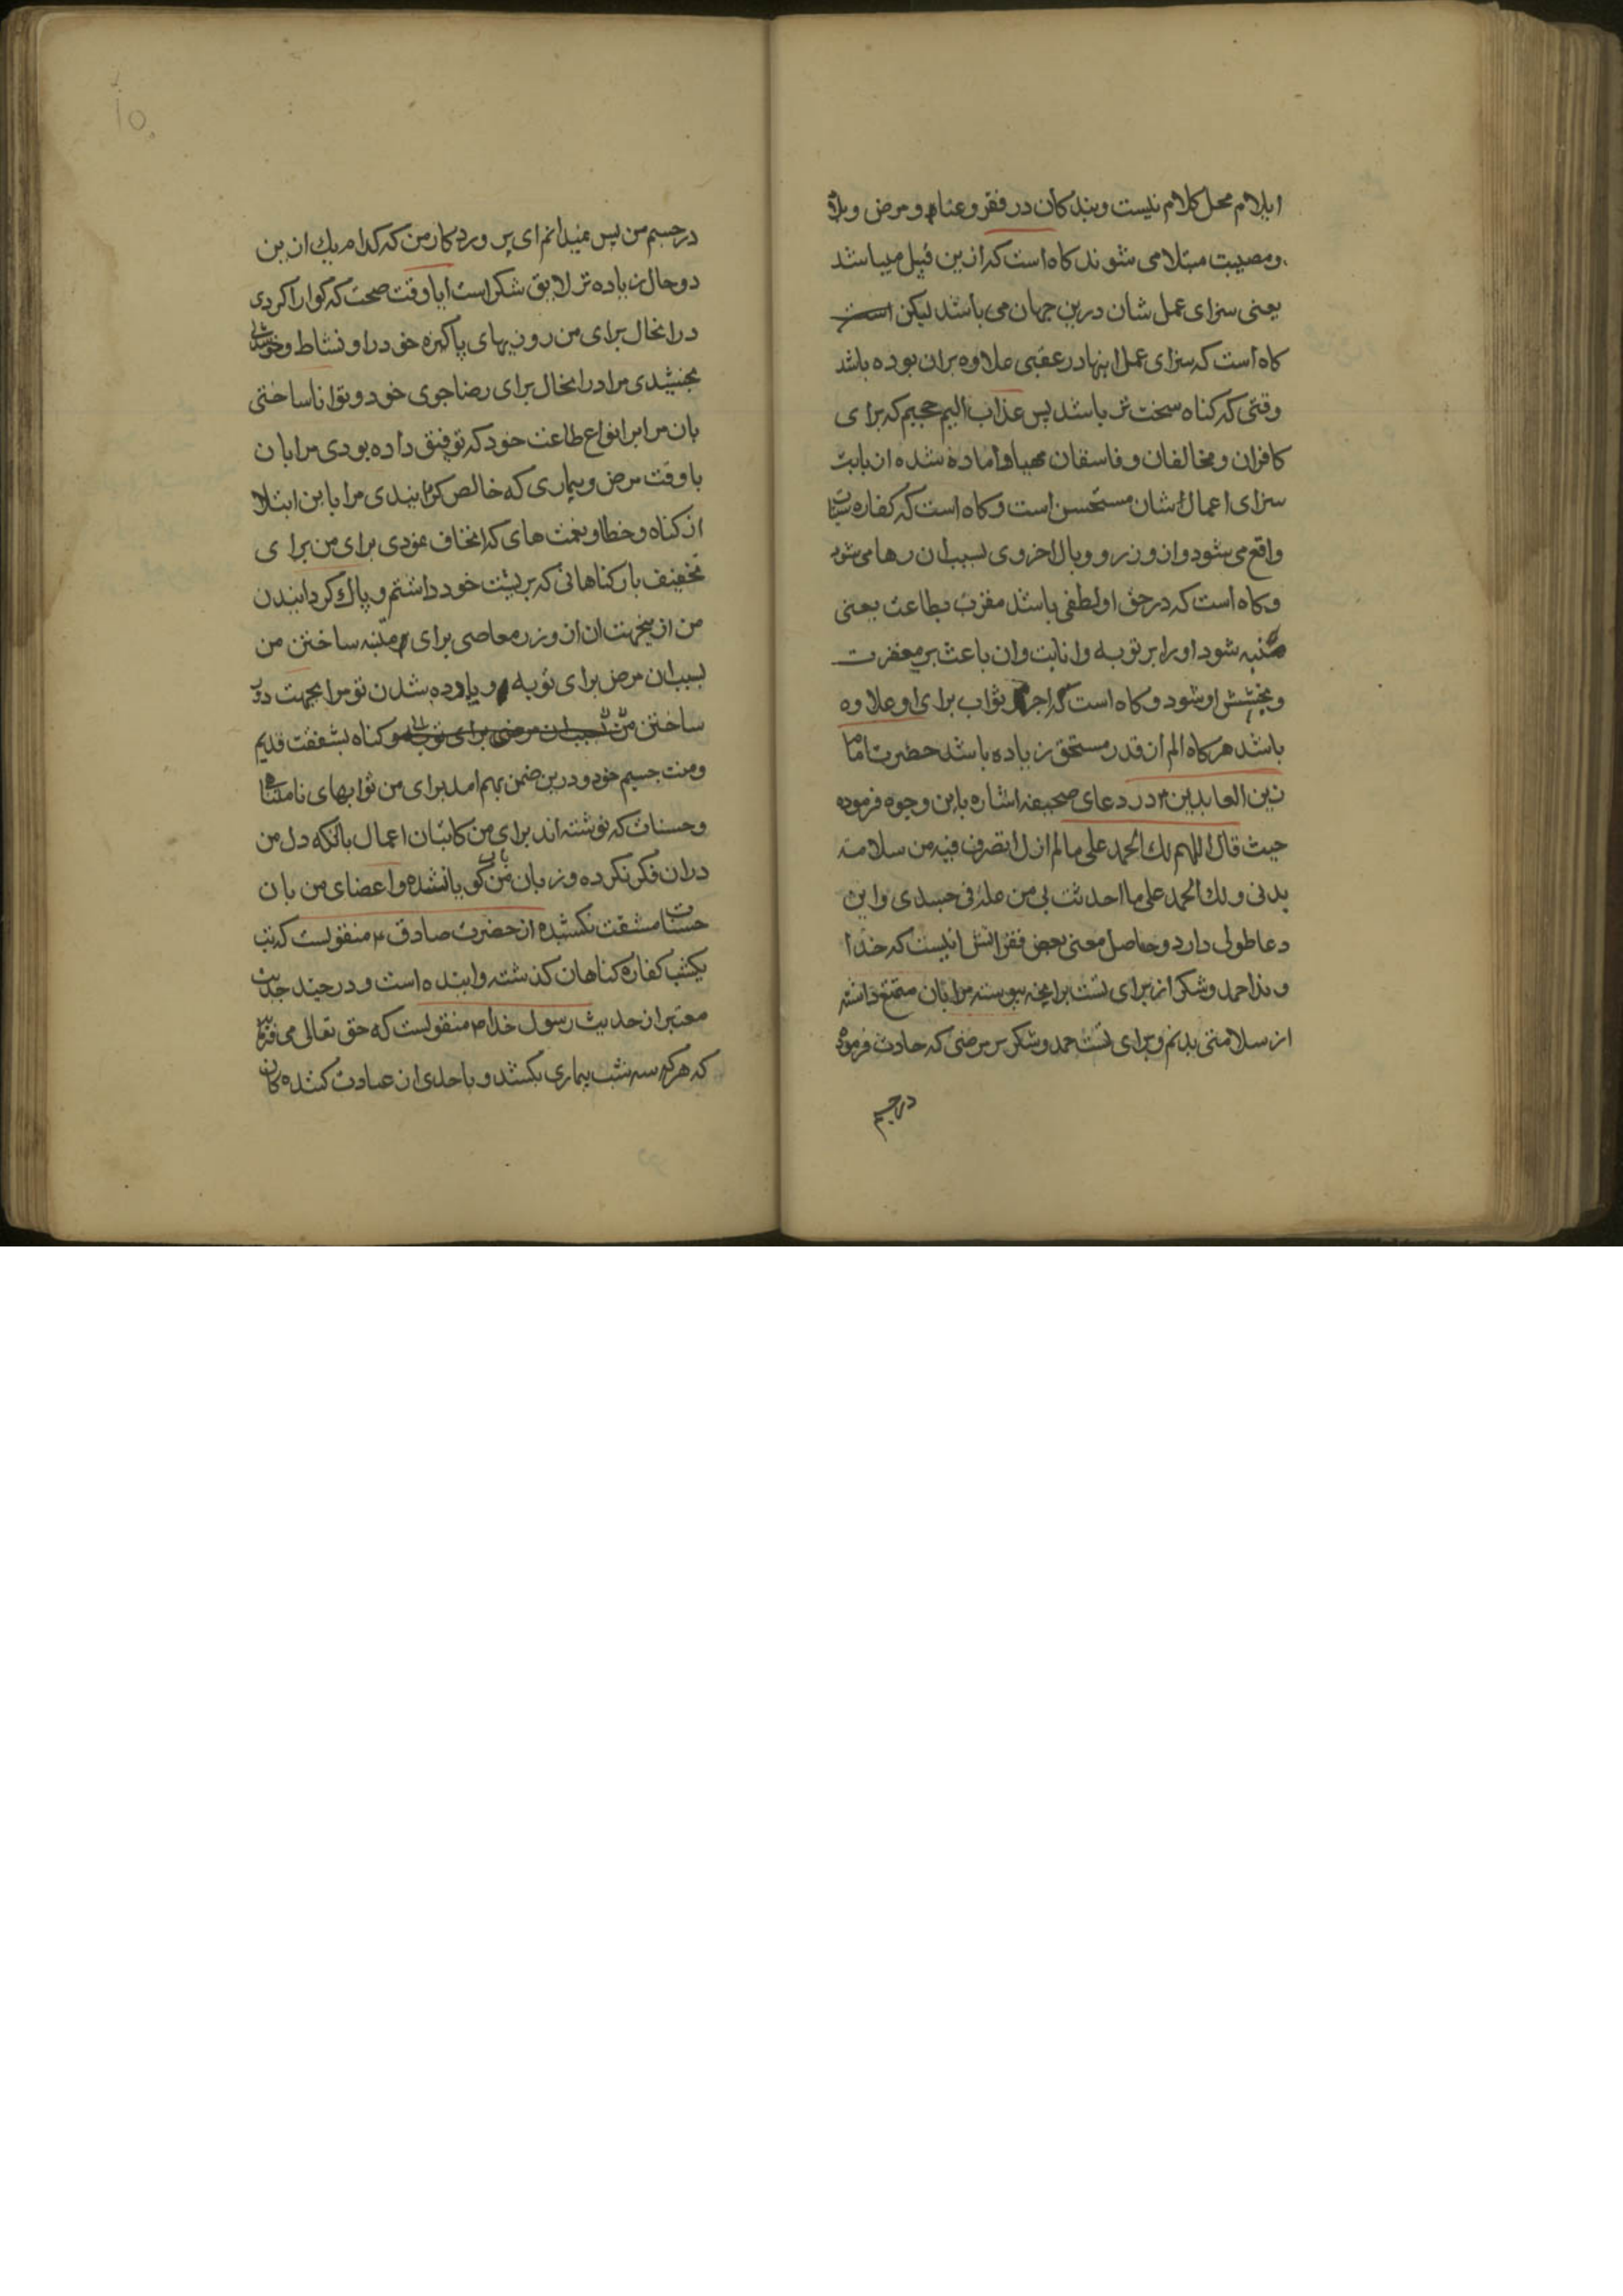 ایلام محل کلام نیست و بندکان در فقر و عنا و مرض و بلا
و مصیبت مبتلا می شوند کاه است که ازین قبیل میباشد
یعنی سزای عمل شان درین جهان می باشد لیکن
کاه است که سزای عمل اینها در عقبی علاوه بران بوده باشد
وقتی که کناه سخت تر باشد پس عذاب الیم جحیم که برای
کافران و مخالفان و فاسقان مهیا و اماده شده از بابت
سزای اعمال ایشان مستحسن است و کاه است که کفاره سیئات
واقع می شود و از وزر و وبال اخروی بسبب ان رها می شود
و کاه است که در حق او لطفی باشد مقرب بطاعت یعنی
متنبه شود او را بر توبه و انابت و ان باعث بر مغفرت
و بخشش او شود و کاه است که اجر ثواب برای او علاوه
باشد هر کاه الم از قدر مستحق زیاده باشد حضرت امام
زین العابدین ۴ در دعای صحیفه اشاره باین وجوه فرموده
حیث قال اللهم لک الحمد علی ما لم ازل اتصرف فیه من سلامة
بدنی و لک الحمد علی ما احدثت بی من علة فی جسدی و این
دعا طولی دارد و حاصل معنی بعض فقراتش اینست که خدا
وندا حمد و شکر از برای تست برانچه پیوسته مرا بان متمتع داشته
از سلامتی بدنم و برای تست حمد و شکر بر مرضی که حادث فرموده
در جسم
در جسم من پس نمیدانم ای پروردکار من که کدام یک ازین
دو حال زیاده تر لایق شکر است ایا وقت صحت که کوارا کردی
درانحال برای من روزیهای پاکیزه خود را و نشاط و خوشحالی
بخشیدی مرا درانحال برای رضا جوی خود و توانا ساختی
بان مرا بر انواع طاعت خود که توفیق داده بودی مرا بان
یا وقت مرض و بیماری که خالص کردانیدی مرا باین ابتلا
از کناه و خطا و نعمت های که اتحاف نمودی برای من برای
تخفیف بار کناهانی که بر پشت خود داشتم و پاک کردانیدن
من ازینجهت ان از وزر معاصی برای متنبه ساختن من
بسبب ان مرض برای توبه و یاد ده شدن تو مرا بجهت دور
ساختن من بسبب ان مرض برای توبه و کناه بشفقت قدیم
و منت جسیم خود و درین ضمن بهم امد برای من ثوابهای نامتناهی
و حسنات که نوشته اند برای من کاتبان اعمال بانکه دل من
دران فکر نکرده و زبان من بان کویا نشده و اعضای من بان
حسنات مشقت نکشیده از حضرت صادق ۴ منقولست که تب
یکشب کفاره کناهان کذشته و اینده است و در چند حدیث
معتبر از حدیث رسول خدا ۴ منقولست که حق تعالی می فرماید
که هر که سه شب بیماری بکشد و باحدی از عیادت کننده کان